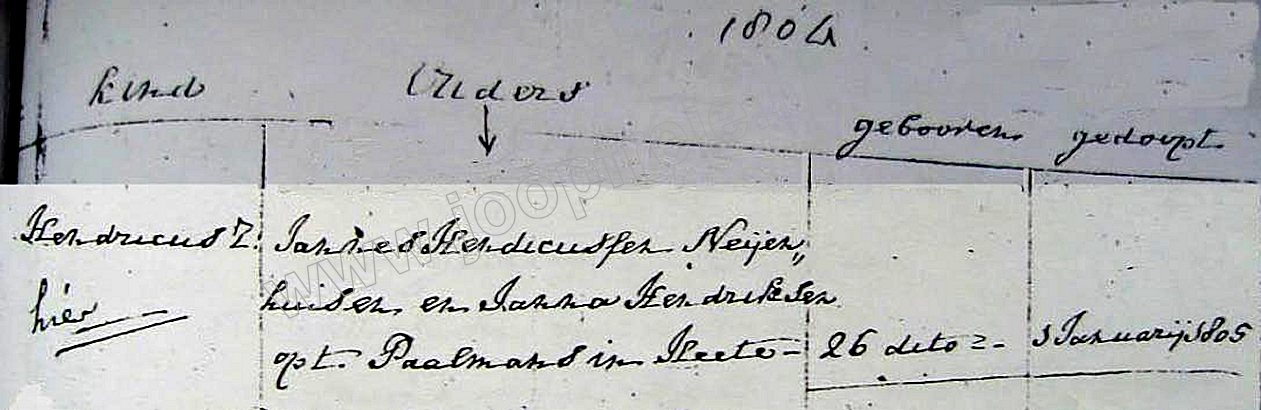 1804
kind Ouders gebooren gedoopt
Hendricus Z: Jannes Hendricussen Neijen„
hier huisen en Janna Hendriksen
opt Paalmans in Heeto - 26 dito =- 1 Januarij 1805
www.joopn